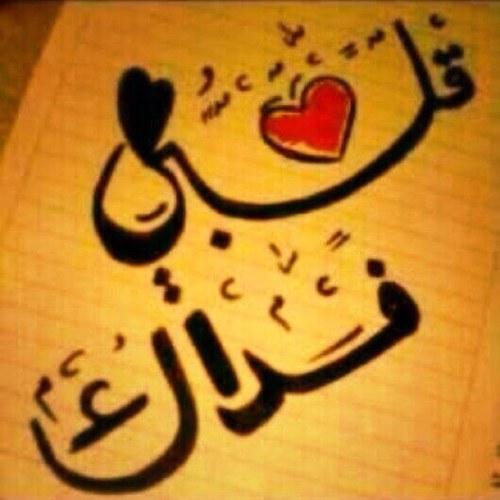 قلبي
فداك